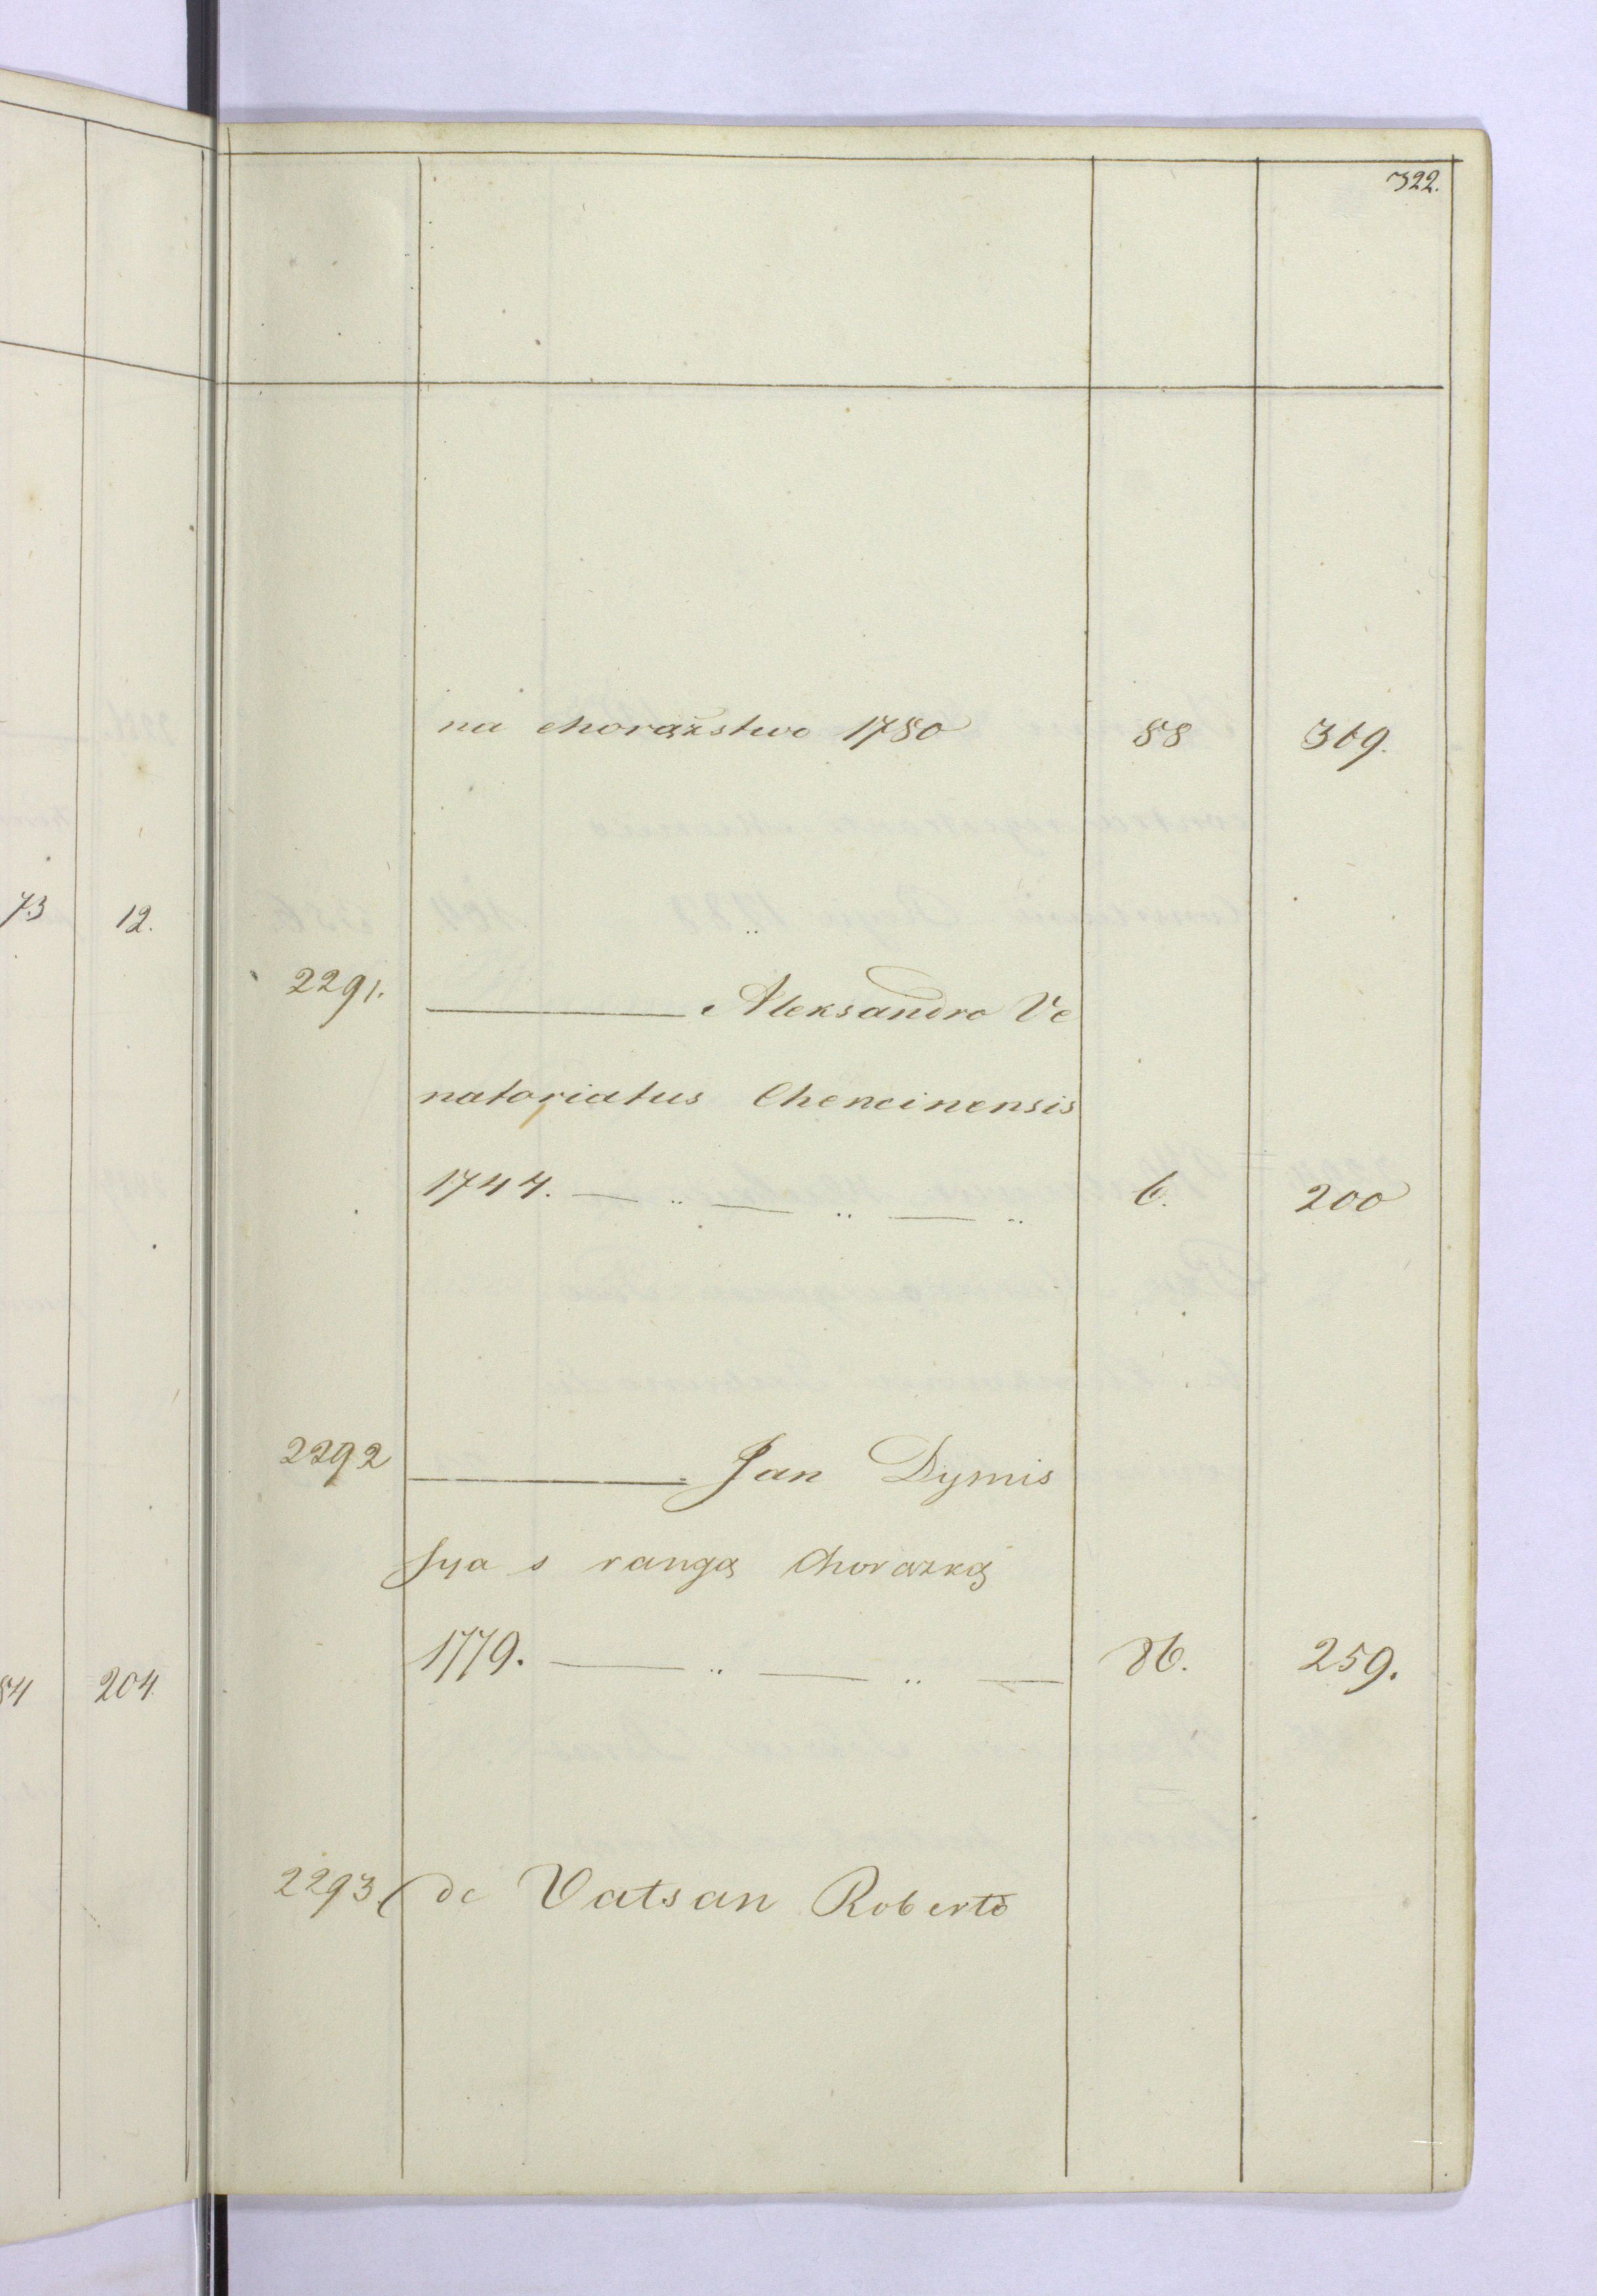 322.
na chorązstwo 1780 88 369.
73 12.
2291. ——— Aleksandro Ve
natoriatus Chencinensis
1744. — .. — .. — .. 6. 200
2292 ——— Jan Dymis
sya s rangą Chorazką
1779. — .. — .. — 86. 259.
84 204
2293. de Vatsan Roberto